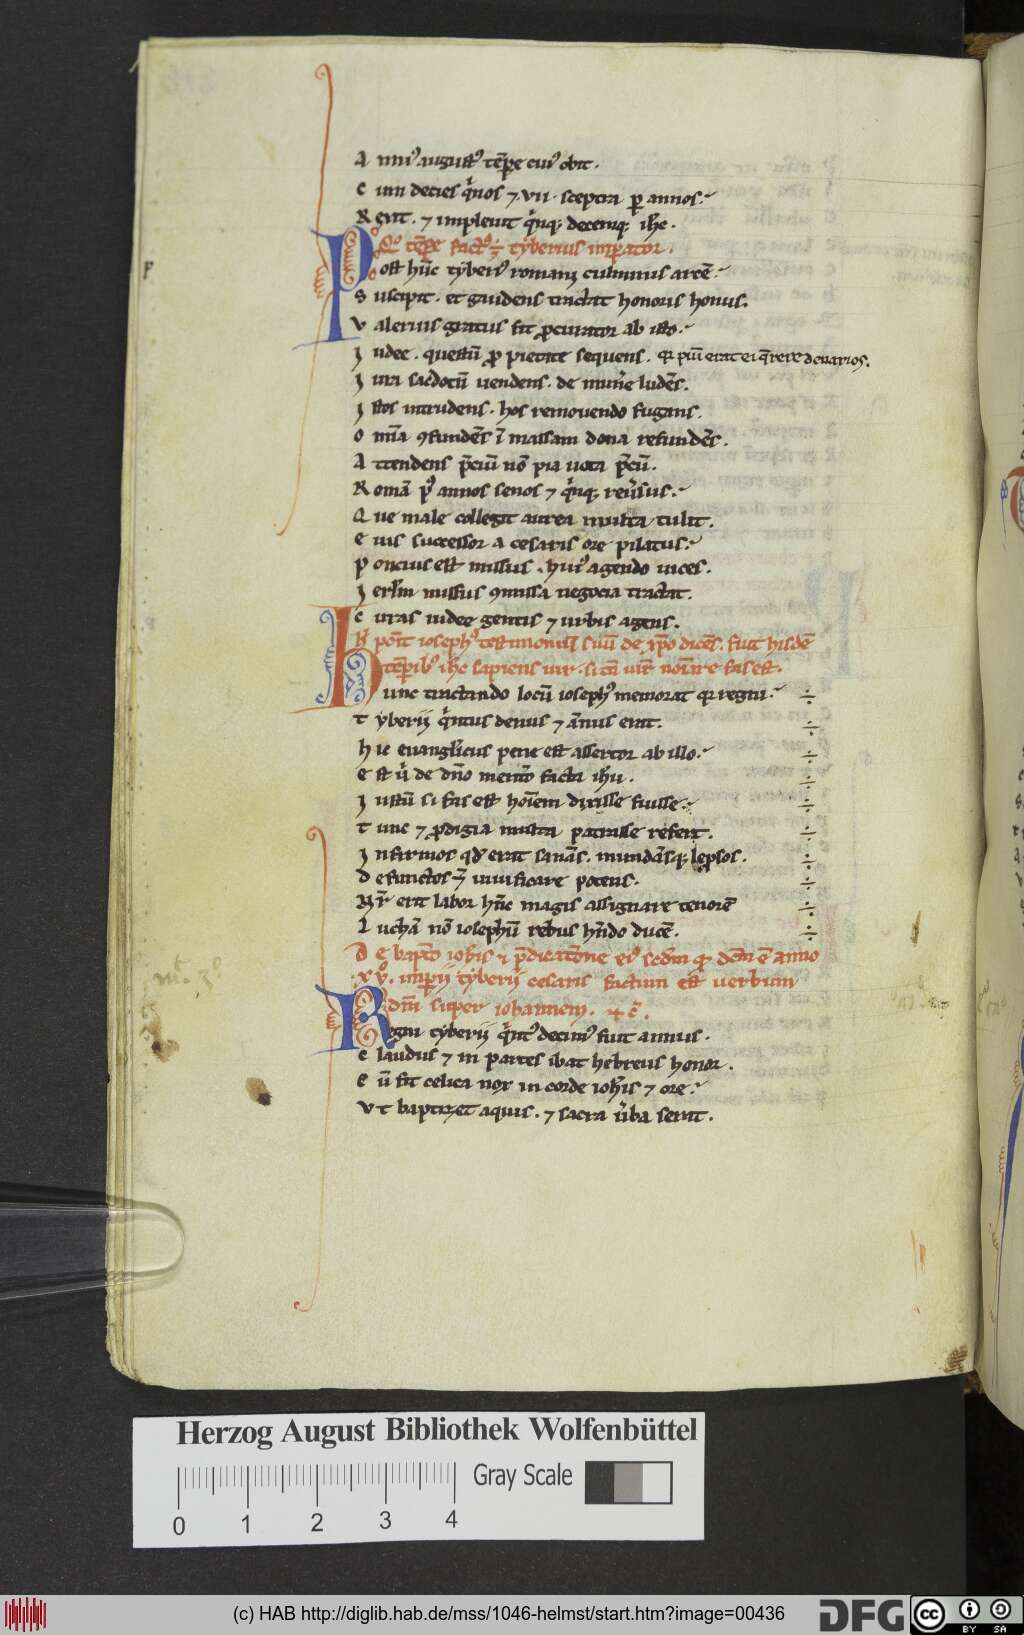 A nnı᷒ august᷒ te̅pe cui᷒ obit.
C um decies q̇nos ⁊ vii. sceptra p annos.
R exit. ⁊ impleuit q̇nq; decemq; ihc.
Q°. te̅pe fact᷒ ÷ tyberius imperator.
P ost hu̅c tyberi᷒ romanu culminis arce̅.
S uscipit. et gaudens tractat honoris honus.
V alerius gratus fit pcurator ab isto.
I udee. questu̅ p pietate sequens. qr piu̅ erat ei q̅rere denarios.
I ura sac̓dotu̅ uendens. de mun̓e lude̅s.
I stos intrudens. hos remouendo fugans.
O mi̅a ꝯfunde̅s i̅ massam dona refunde̅s.
A ttendens p̅ciu̅ no̅ pia uota p̅cu̅.
R oma̅ p᷒ annos senos ⁊ q̇nq; reu̓sus.
Q ue male collegit aurea multa tulit.
E uis successor a cesaris ore pilatus.
P oncius est missus. hui᷒ agendo uices.
I erl̅m missus ꝯmissa negocia tractat.
C uras iudee gentis ⁊ urbis agens.
H̓ po̅it ioseph᷒ testimoniu̅ suu̅ de xp̅o dice̅s. fuit hisde̅
te̅pib᷒ ihc sapiens uir. si tn̅ uir̅ no̅i̅are fas est.
H unc tractando locu̅ ioseph᷒ memorat qr regni. ÷
T yberii q̇ntus denus ⁊ a̅nus erat. ÷
H ic euangl̓icus pene est assertor ab illo. ÷
E st u̇ de dn̅o mentio facta ihu. ÷
I ustu̅ si fas est hoi̅em dixisse fuisse. ÷
T unc ⁊ pdigia multa patrasse refert. ÷
I nfirmos qd̓ erat sana̅s. munda̅sq; lepsos. ÷
D efunctos ÷ uiuificare potens. ÷
N r̅ erit labor hu̅c magis assignare tenore̅ ÷
L ucha̅ no̅ iosephu̅ rebus h̅ndo duce̅. ÷
D e bapto̅ ioh̅is ⁊ p̅dicato̅ne ei᷒ scdm qr dc̅m e̅ anno
xv°. imperii tyberii cesaris factum est uerbum
dn̅i super iohannem. ⁊ c̅.
R egni tyberii q̇nt᷒ decim᷒ fuit annus.
C laudus ⁊ in partes ibat hebreus honor.
C u̅ fit celica uox in corde ioh̅is ⁊ ore.
V t baptizet aquis. ⁊ sacra u̓ba serat.
Herzog August Bibliothek Wolfenbüttel
Gray Scale
0 1 2 3 4
(c) HAB http://diglib.hab.de/mss/1046-helmst/start.htm?image=00436
DFG
cc BY SA